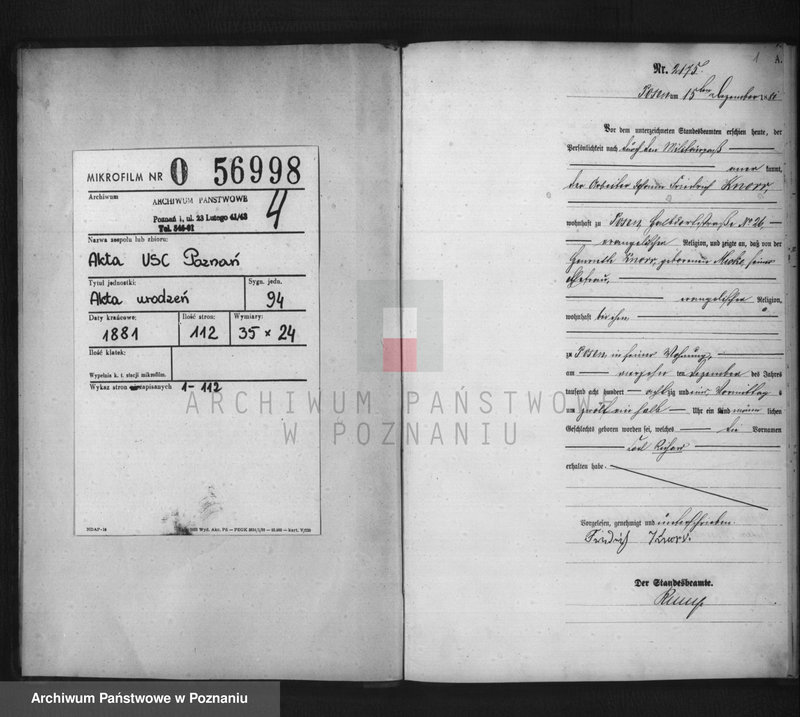 MIKROFILM NR 0 56998
Archiwum
ARCHIWUM PAŃSTWOWE
Poznań i, ul. 23 Lutego 41/43
Tel. 546-01
4
Nazwa zespołu lub zbioru:
Akta USC Poznań
Tytuł jednostki:
Sygn. jedn.
Akta urodzeń
94
Daty krańcowe:
Ilość stron:
Wymiary:
1881
112
35 × 24
Ilość klatek:
Wypełnia k. t. stacji mikrofilm.
Wykaz stron zapisanych 1-112
1
A.
Nr. 2175
Posen am 15ten Dezember 1881
Vor dem unterzeichneten Standesbeamten erschien heute, der
Persönlichkeit nach durch den Militairpaß
kannt,
der Arbeiter Friedrich Knorr,
wohnhaft zu Posen No 26,
evangelischer Religion, und zeigte an, daß von der
Knorr, geborenen seiner
Ehefrau,
evangelischer Religion,
wohnhaft bei ihm
zu Posen in seiner Wohnung,
am vierzehnten Dezember des Jahres
tausend acht hundert achtzig und eins, Vormittag s
um zwölf ein halb Uhr ein Kind männlichen
Geschlechts geboren worden sei, welches die Vornamen
erhalten habe.
Vorgelesen, genehmigt und unterschrieben
Friedrich Knorr.
Der Standesbeamte.
ARCHIWUM PAŃSTWOWE
W POZNANIU
Archiwum Państwowe w Poznaniu